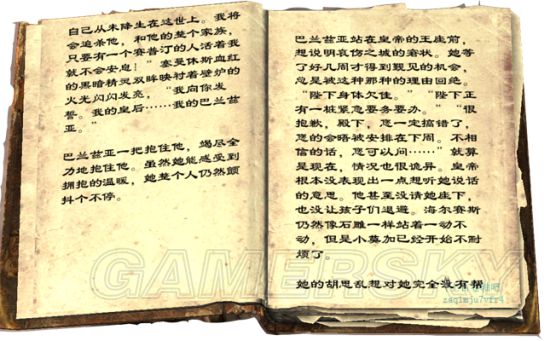 自己从未降生在这世上。我将
会追杀他，和他的整个家族，
只要有一个赛普汀的人活着我
就不会安息！” 塞曼休斯血红
的黑暗精灵双眸映衬着壁炉的
火光闪闪发亮，“我向你发
誓。我的皇后……我的巴兰兹
亚。”
巴兰兹亚一把抱住他，竭尽全
力地抱住他。虽然她能感受到
拥抱的温暖，她整个人仍然颤
抖个不停。
巴兰兹亚站在皇帝的王座前，
想说明哀伤之城的窘状。她等
了好几周才得到觐见的机会，
总是被这种那种的理由回绝。
“陛下身体欠佳。” “陛下正
有一桩紧急要务要办。” “很
抱歉，殿下，您一定搞错了，
您的会晤被安排在下周。不相
信的话，您可以问……” 就算
是现在，情况也很诡异。皇帝
根本没表现出一点想听她说话
的意思。他甚至没请她座下，
也没让孩子们退避。海尔赛斯
仍然像石雕一样站着一动不
动，但是小莫加已经开始不耐
烦了。
她的胡思乱想对她完全没有帮
GAMERSKY
zaqimju7vfr4